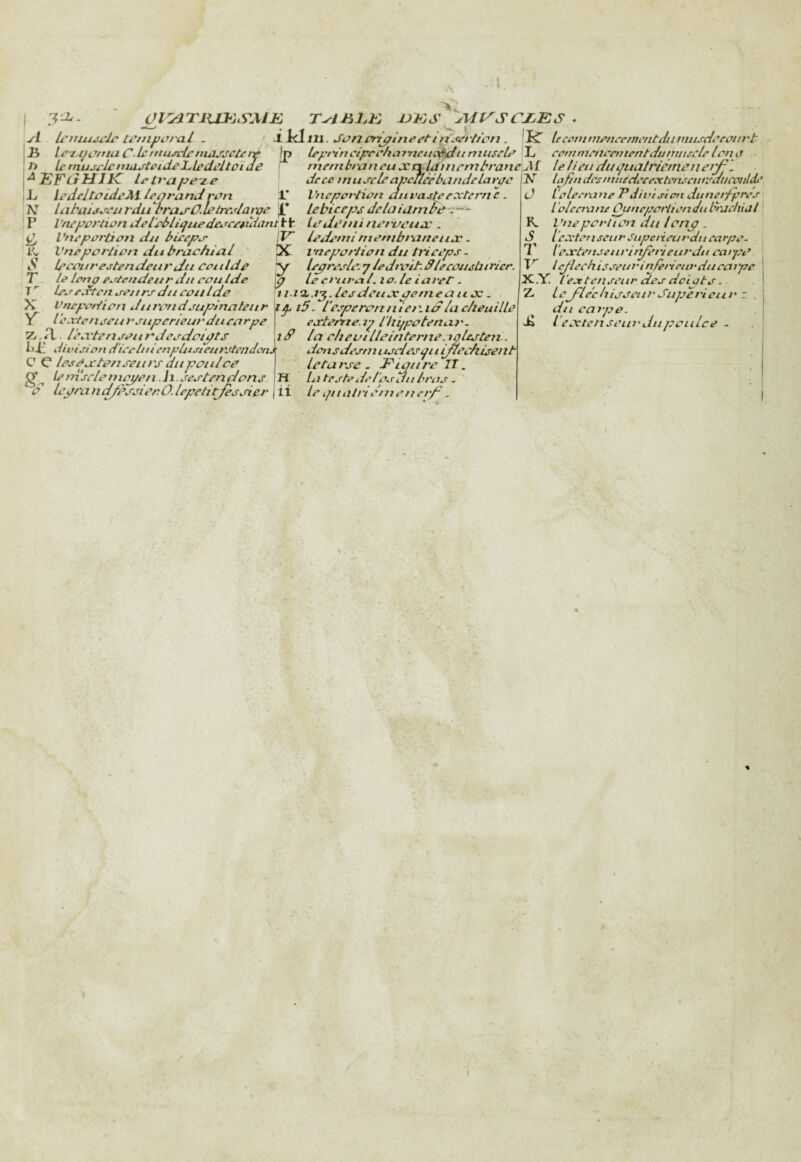 32. QVATRIESME TABLE DES MVSCLES.
A le muscle temporal.
B le zygoma C. le muscle massetere
D le muscle mastoide L le deltoide
A EFGHIK le trapeze
L le deltoide M le grand ron
N l'abaisseur du bras O. le tres large
P Vne portion de l'oblique descendant
Q Vne portion du biceps
R Vne portion du brachial
S le cour estendeur du coulde
T le long estendeur du coulde
V les extenseurs du coulde
X Vne portion du rond supinateur
Y l'extenseur superieur du carpe
Z. l'extenseur des doigts
bb division d'iceluі en plusieurs tendons
C C les extenseurs du poulce
le muscle moyen. h. ses tendons
le grand fessier. O. le petit fessier
ii kl m. Son origine et insertion.
p le principe charneux du muscle
membraneux q la membrane
de ce muscle apellee bande large
r Vne portion du vaste externe.
f le biceps de la iambe.
tt le demi nerueux.
V le demi membraneux.
X vne portion du triceps.
y le gresle. 7 le droit. 8 le cousturier.
9 le crural. 10. le iaret.
11. 12. 13. les deux gemeaux.
14. 15. l'esperonnier. 16 la cheuille
externe. 17 l'hypotenar.
18 la cheuille interne. 19 les ten.
dons des muscles qui flechisent
le tarse. Figure II.
H la teste de l'os du bras.
ii le quatriéme nerf.
K le commencement du muscle court
L commencement du muscle long
M le lieu du quatriéme nerf.
N la fin des muscles extenseurs du coulde
O l'olecrane P diuision du nerf pres
l'olecrane Q une portion du brachial
R Vne portion du long.
S l'extenseur superieur du carpe.
T l'extenseur inferieur du carpe
V le flechisseur inferieur du carpe
X.Y. l'extenseur des doigts.
Z le flechisseur Superieur
du carpe.
& l'extenseur du poulce.